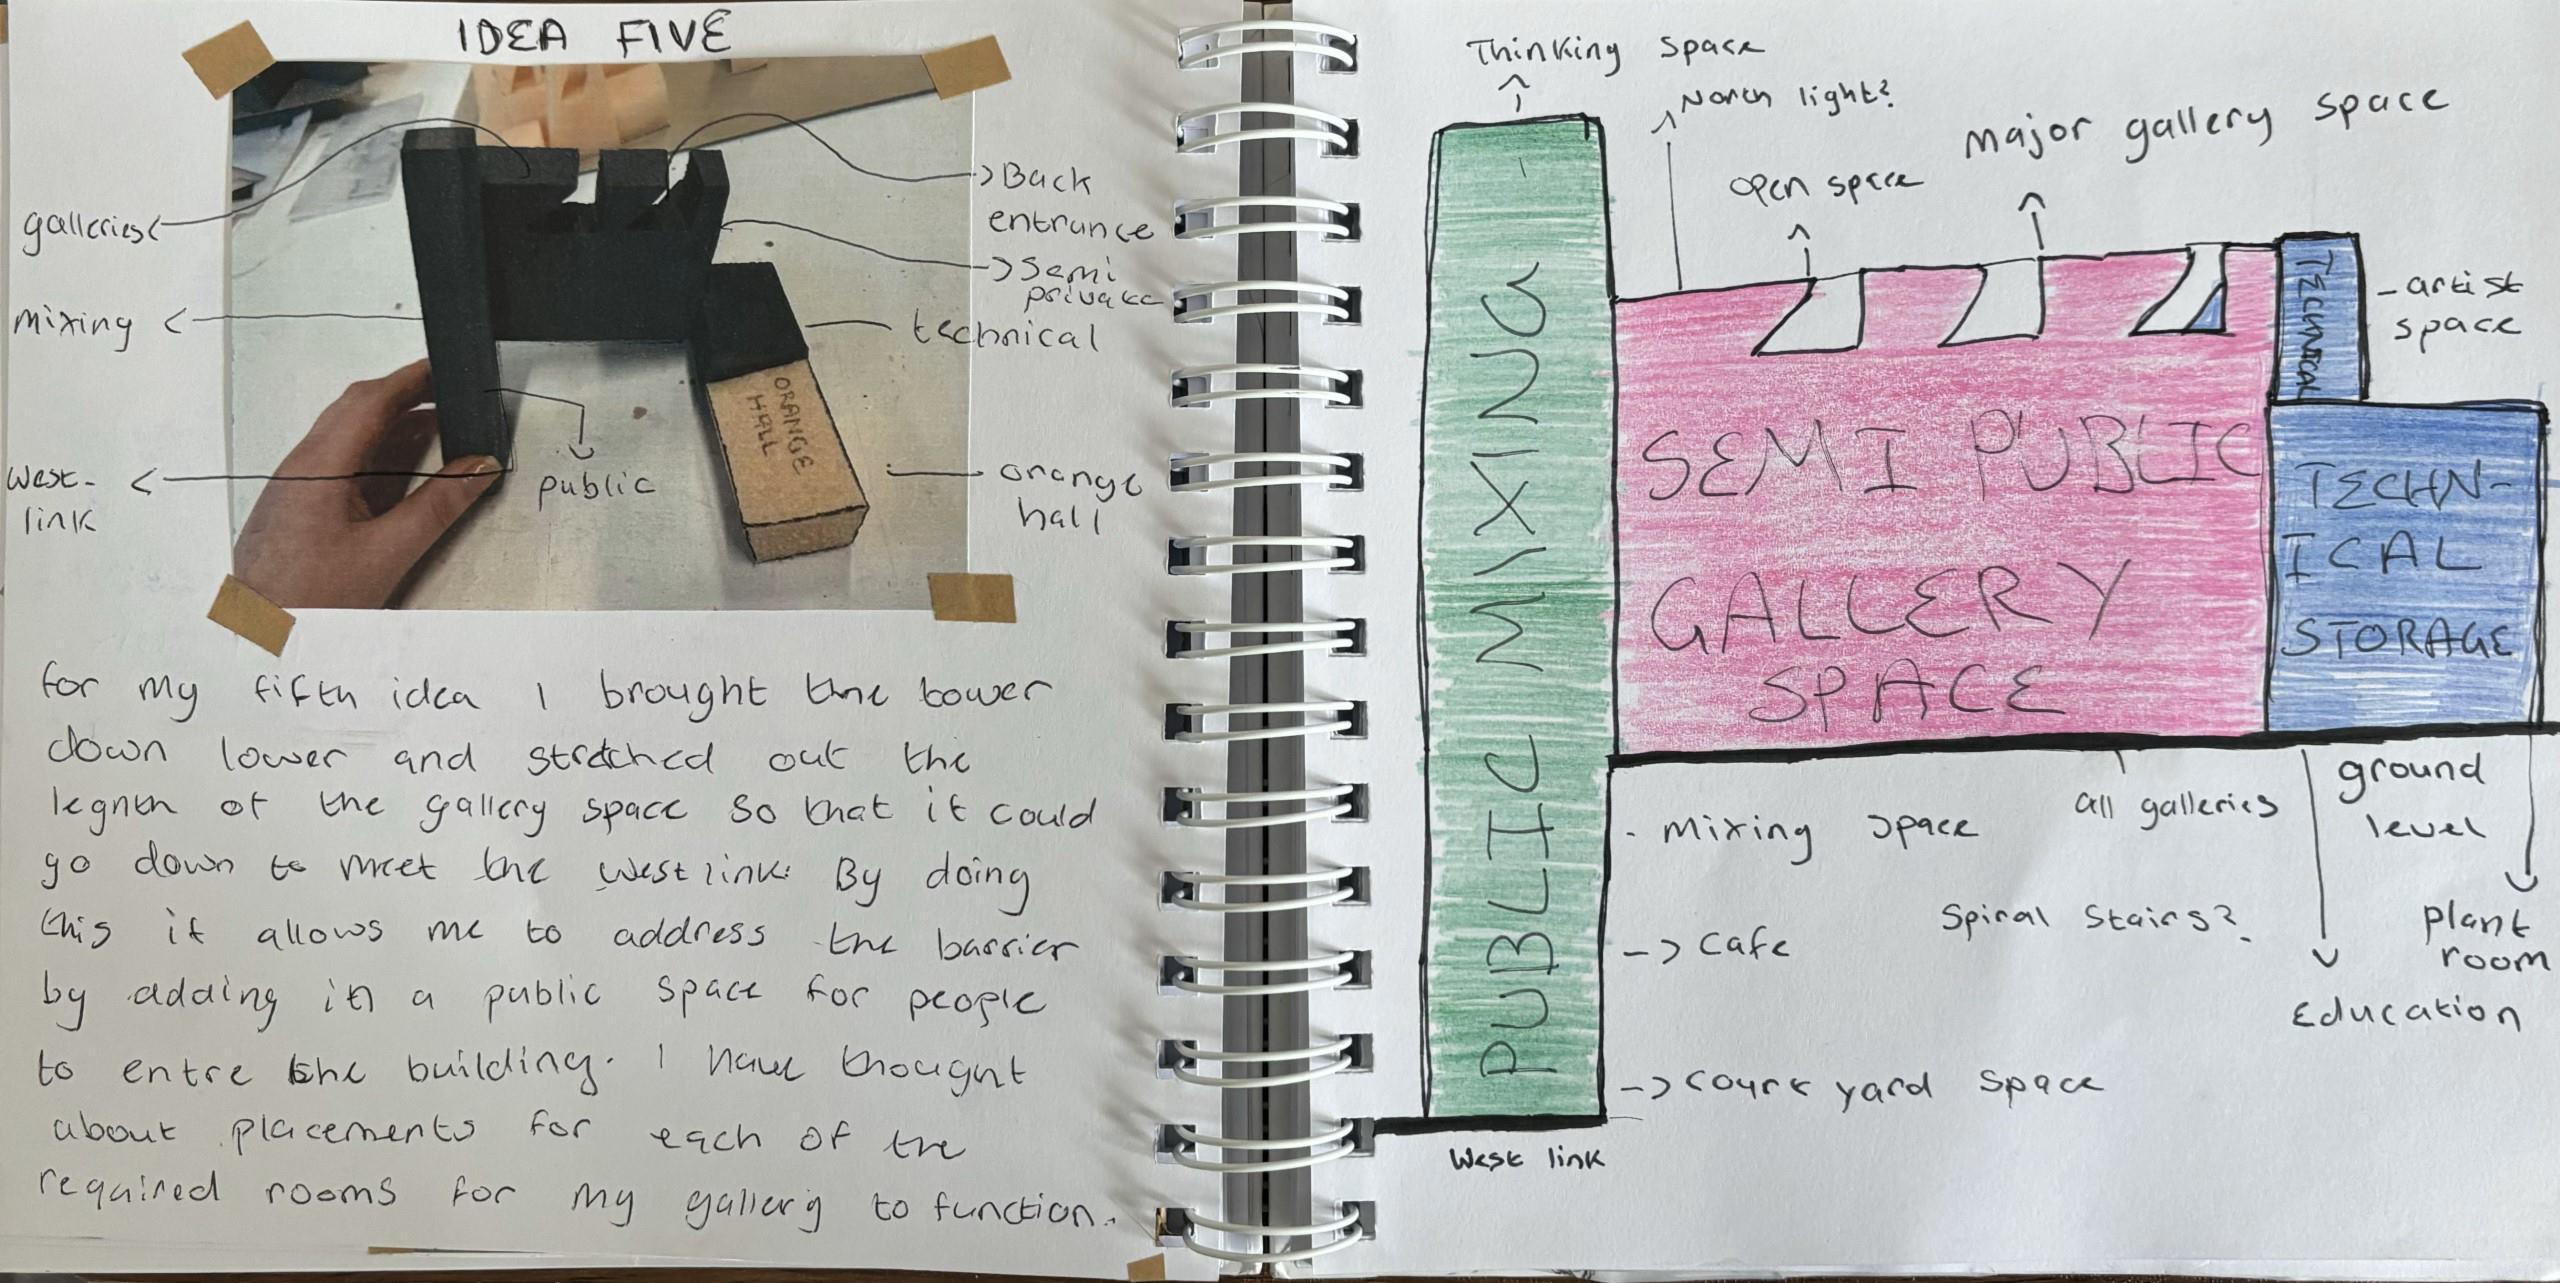 IDEA FIVE
galleries
mixing
west-
link
public
Back
entrance
Semi
private
technical
ORANGE
HALL
orange
hall
for my fifth idea I brought the tower
down lower and stretched out the
legnth of the gallery space so that it could
go down to meet the westlink. By doing
this it allows me to address the barrier
by adding in a public space for people
to entre the building. I have thought
about placements for each of the
required rooms for my gallery to function.
Thinking space
North light?
open space
Major gallery space
PUBLIC MIXING
SEMI PUBLIC
GALLERY
SPACE
TECHNICAL
- artist
space
TECHN-
ICAL
STORAGE
ground
level
all galleries
- Mixing space
-> Cafe
Spiral Stairs?
plant
room
Education
-> Court yard space
West link